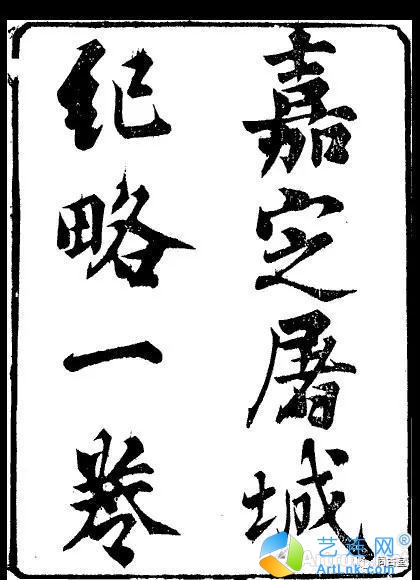 嘉定屠城
紀略一卷
艺饰网®
ArtLnk.com